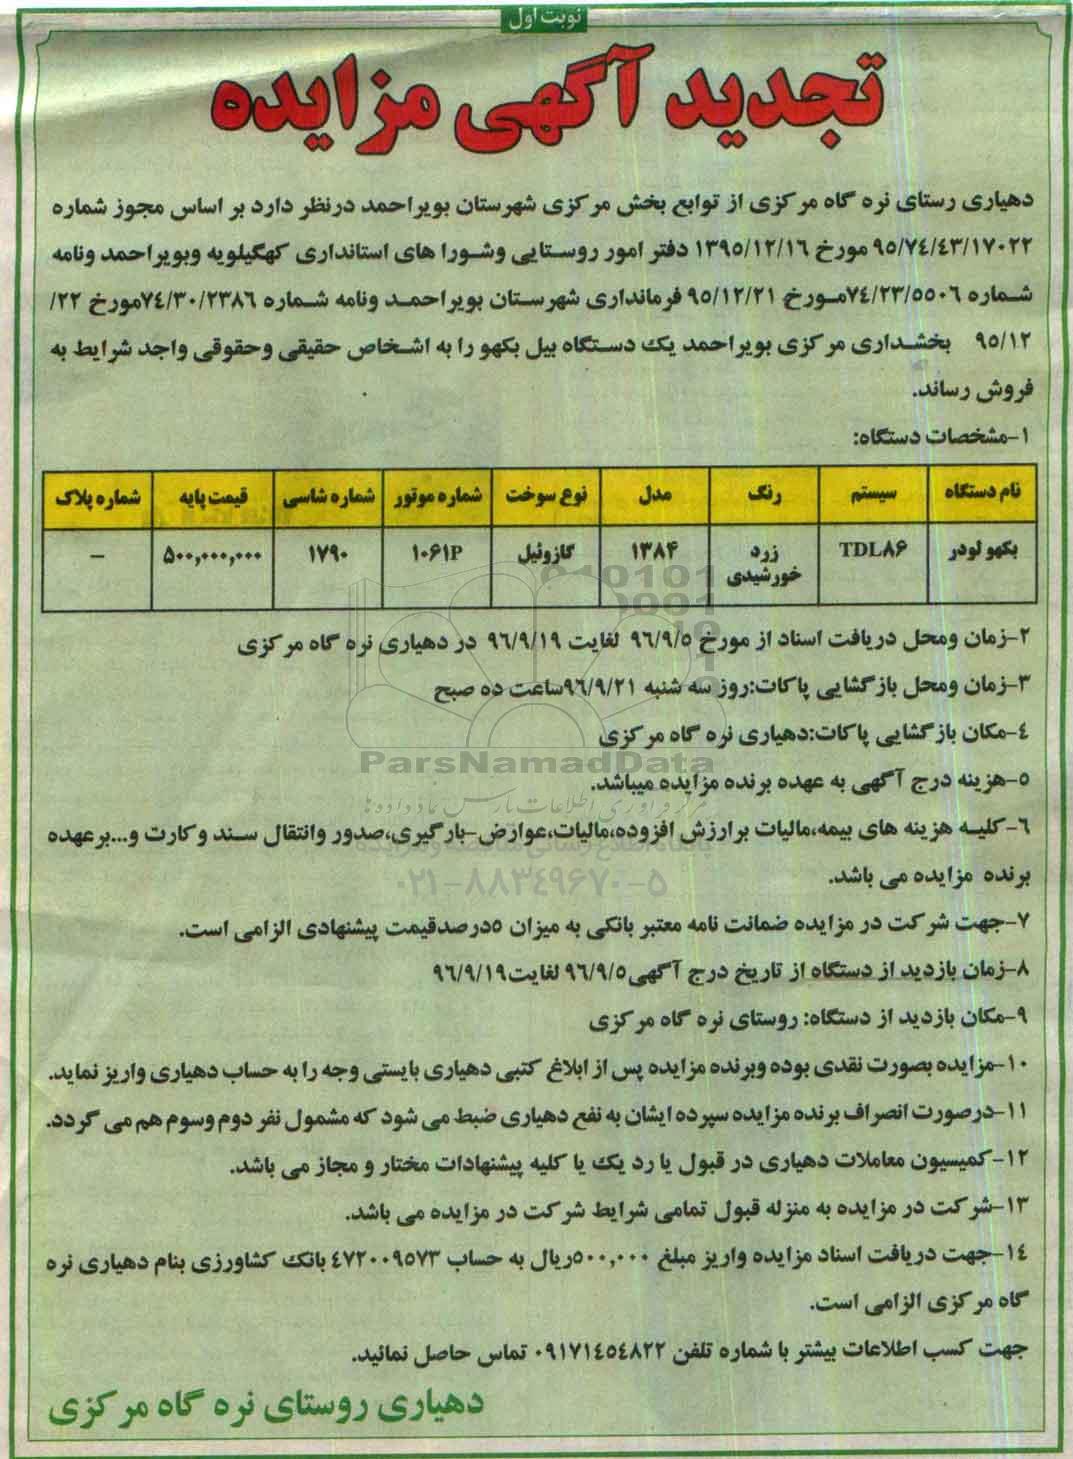 نوبت اول
تجدید آگهی مزایده
دهیاری رستای نره گاه مرکزی از توابع بخش مرکزی شهرستان بویراحمد درنظر دارد بر اساس مجوز شماره
۹۵/۷٤/٤۳/۱۷۰۲۲ مورخ ۱۳۹۵/۱۲/۱٦ دفتر امور روستایی وشورا های استانداری کهگیلویه وبویراحمد ونامه
شماره ۷٤/۲۳/۵۵۰٦مورخ ۹۵/۱۲/۲۱ فرمانداری شهرستان بویراحمد ونامه شماره ۷٤/۳۰/۲۳۸٦مورخ ۲۲/
۹۵/۱۲ بخشداری مرکزی بویراحمد یک دستگاه بیل بکهو را به اشخاص حقیقی وحقوقی واجد شرایط به
فروش رساند.
۱-مشخصات دستگاه:
نام دستگاه سیستم رنگ مدل نوع سوخت شماره موتور شماره شاسی قیمت پایه شماره پلاک
بکهو لودر TDL۸۶ زرد خورشیدی ۱۳۸۴ گازوئیل ۱۰۶۱P ۱۷۹۰ ۵۰۰,۰۰۰,۰۰۰ –
۲-زمان ومحل دریافت اسناد از مورخ ۹٦/۹/۵ لغایت ۹٦/۹/۱۹ در دهیاری نره گاه مرکزی
۳-زمان ومحل بازگشایی پاکات:روز سه شنبه ۹٦/۹/۲۱ساعت ده صبح
٤-مکان بازگشایی پاکات:دهیاری نره گاه مرکزی
ParsNamadData
۵-هزینه درج آگهی به عهده برنده مزایده میباشد.
٦-کلیه هزینه های بیمه،مالیات برارزش افزوده،مالیات،عوارض-بارگیری،صدور وانتقال سند وکارت و...برعهده
برنده مزایده می باشد.
۰۲۱-۸۸۳۴۹۶۷۰-۵
۷-جهت شرکت در مزایده ضمانت نامه معتبر بانکی به میزان ۵درصدقیمت پیشنهادی الزامی است.
۸-زمان بازدید از دستگاه از تاریخ درج آگهی۹٦/۹/۵ لغایت۹٦/۹/۱۹
۹-مکان بازدید از دستگاه: روستای نره گاه مرکزی
۱۰-مزایده بصورت نقدی بوده وبرنده مزایده پس از ابلاغ کتبی دهیاری بایستی وجه را به حساب دهیاری واریز نماید.
۱۱-درصورت انصراف برنده مزایده سپرده ایشان به نفع دهیاری ضبط می شود که مشمول نفر دوم وسوم هم می گردد.
۱۲-کمیسیون معاملات دهیاری در قبول یا رد یک یا کلیه پیشنهادات مختار و مجاز می باشد.
۱۳-شرکت در مزایده به منزله قبول تمامی شرایط شرکت در مزایده می باشد.
۱٤-جهت دریافت اسناد مزایده واریز مبلغ ۵۰۰,۰۰۰ریال به حساب ٤۷۲۰۰۹۵۷۳ بانک کشاورزی بنام دهیاری نره
گاه مرکزی الزامی است.
جهت کسب اطلاعات بیشتر با شماره تلفن ۰۹۱۷۱٤۵٤۸۲۲ تماس حاصل نمائید.
دهیاری روستای نره گاه مرکزی